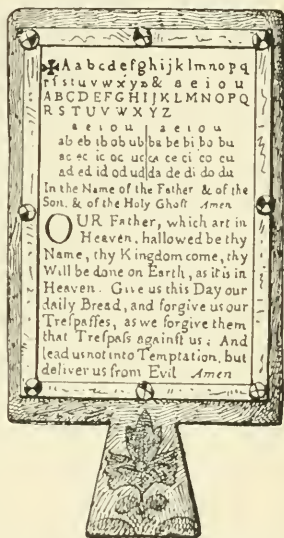 ✠Aabcdefghijklmnopq
rſstuvwxyz& aeiou
ABCDEFGHIJKLMNOPQ
RSTUVWXYZ
aeiou | aeiou
ab eb ib ob ub | ba be bi bo bu
ac ec ic oc uc | ca ce ci co cu
ad ed id od ud | da de di do du
In the Name of the Father & of the
Son, & of the Holy Ghoſt Amen
OUR Father, which art in
Heaven, hallowed be thy
Name, thy Kingdom come, thy
Will be done on Earth, as it is in
Heaven. Give us this Day our
daily Bread, and forgive us our
Treſpaſſes, as we forgive them
that Treſpaſs againſt us: And
lead us not into Temptation, but
deliver us from Evil Amen